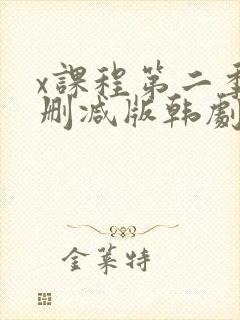 x課程第二季
刪減版韩劇
金莱特